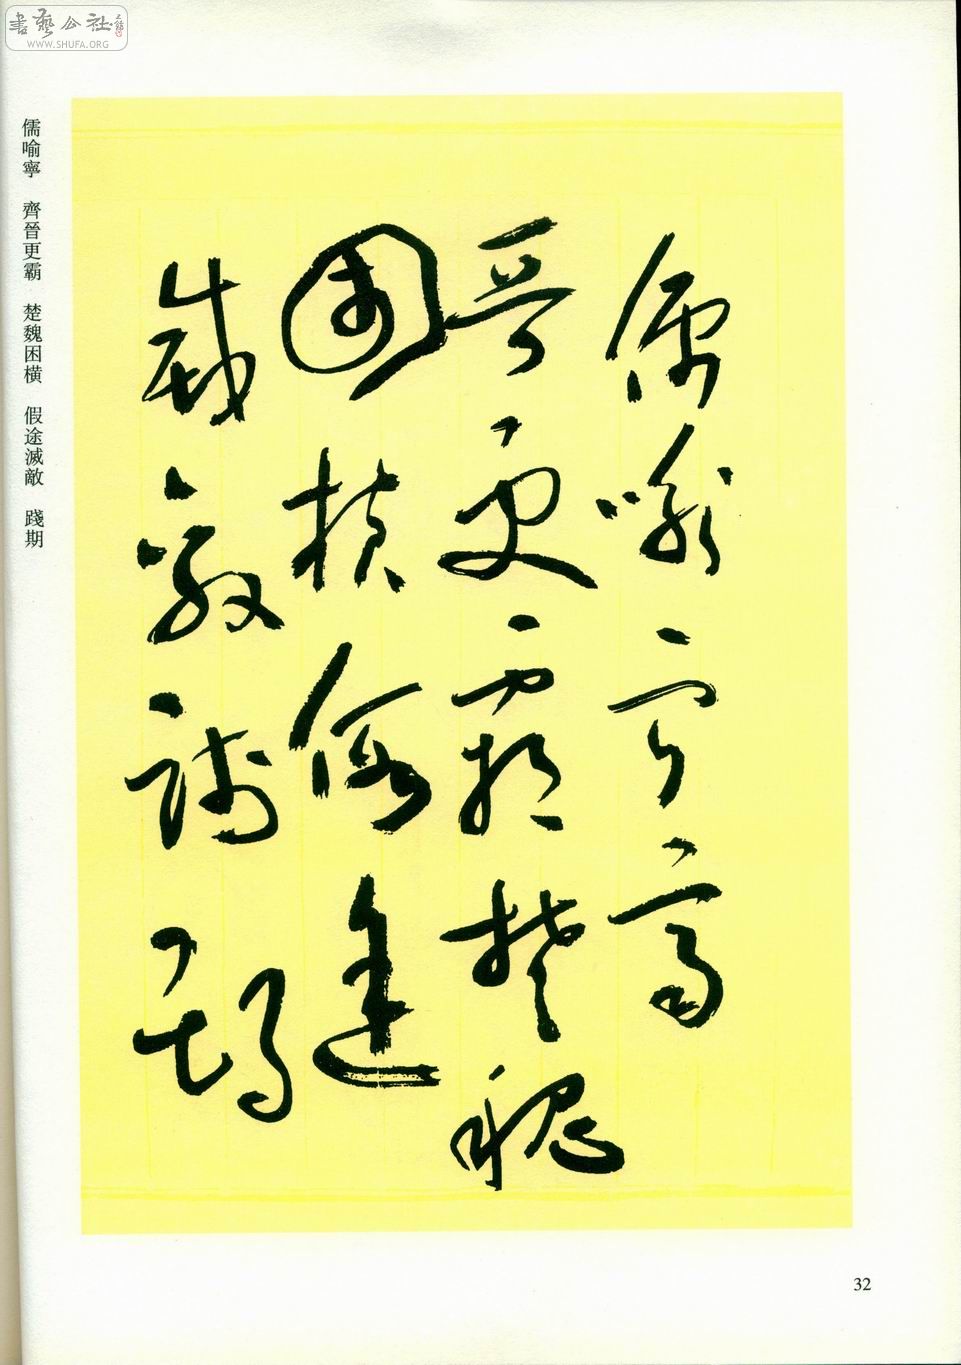 書藝公社
WWW.SHUFA.ORG
儒喻寧齊
晉更霸楚魏
困橫假途
滅敵踐期
儒喻寧 齊晉更霸 楚魏困橫 假途滅敵 踐期
32